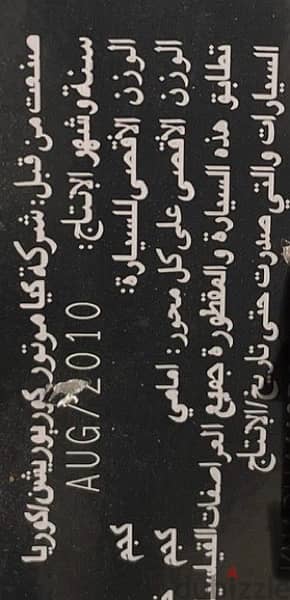 صنعت من قبل: شركة كيا موتورز كوربوريشن/كوريا
سنة وشهر الإنتاج:
AUG/2010
الوزن الأقصى للسيارة: كجم
الوزن الأقصى على كل محور: امامي كجم
تطابق هذه السيارة والمقطورة جميع المواصفات
السيارات والتي صدرت حتى تاريخ الإنتاج